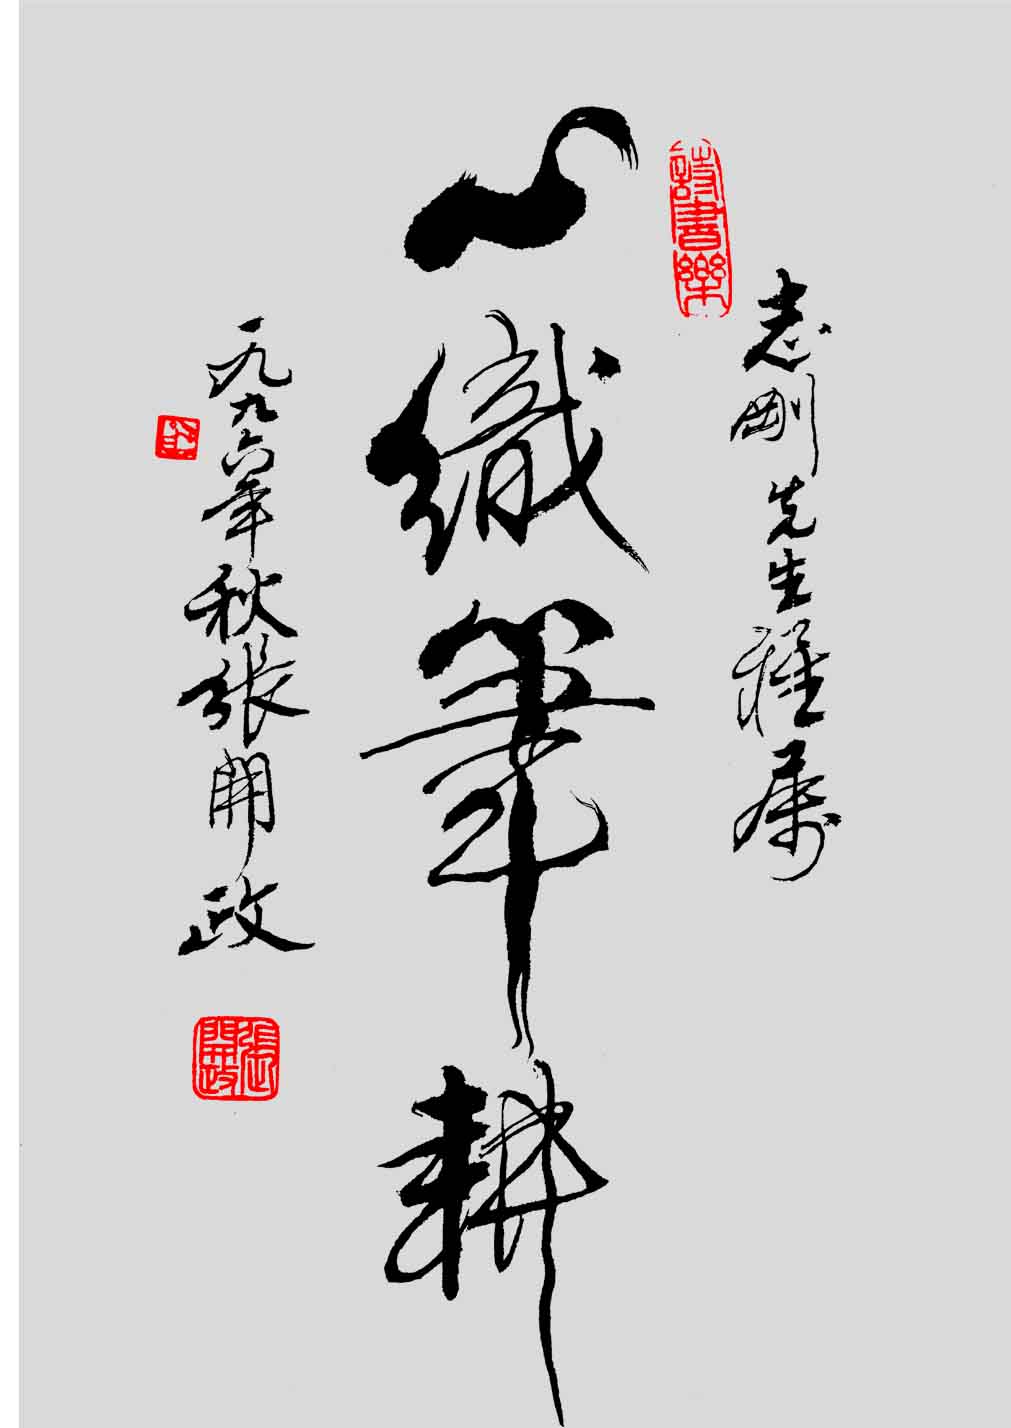 志剛先生雅屬
心織筆耕
一九九六年秋張開政
詩書樂
張開政